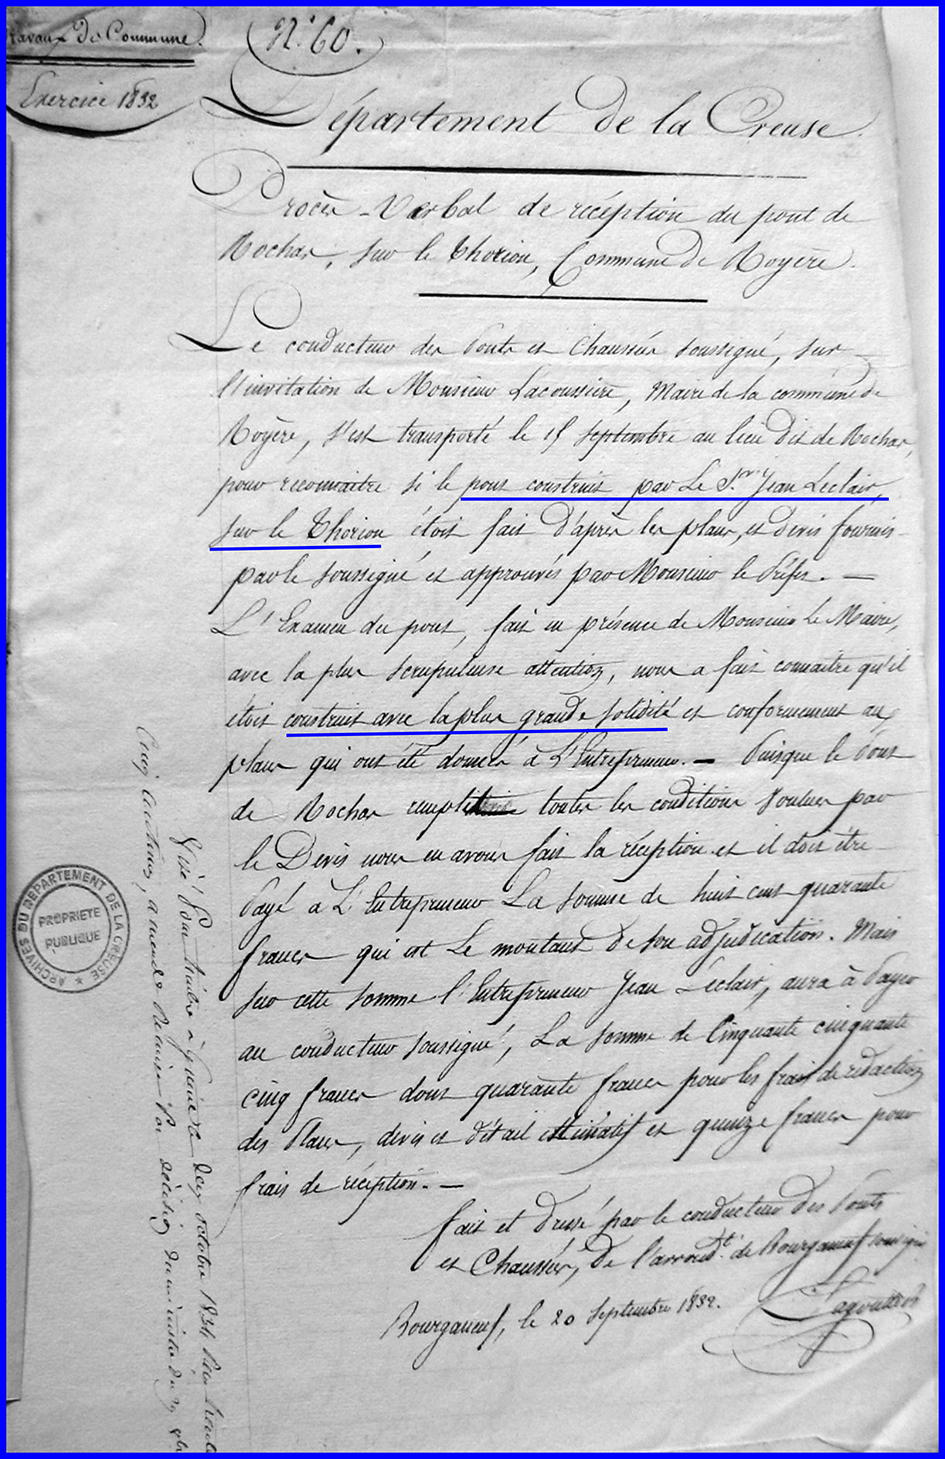 Travaux des Communes.
Exercice 1832
N.° 60.
Département de la Creuse.
Procès-Verbal de réception du pont de
Rochas, sur le Thorion, Commune de Royère.
Le conducteur des Ponts et Chaussées soussigné, sur
l'invitation de Monsieur Lacoussière, Maire de la commune de
Royère, s'est transporté le 15 septembre au lieu dit de Rochas,
pour reconnaitre si le pont construit par Le S.r Jean Leclair,
sur le Thorion étoit fait d'après les plans, et devis fournis
par le soussigné et approuvés par Monsieur le Préfet. —
L'Examen du pont, fait en présence de Monsieur le Maire,
avec la plus scrupuleuse attention, nous a fait connaitre qu'il
étoit construit avec la plus grande solidité et conformement aux
plans qui ont été donnés à L'Entrepreneur. — Puisque le Pont
de Rochas remplit toutes les conditions voulues par
le Devis nous en avons fait la réception et il doit être
Payé à L'Entrepreneur La somme de huit cent quarante
francs qui est Le montant de son adjudication. Mais
sur cette somme l'Entrepreneur Jean Leclair, aura à Payer
au conducteur soussigné, La somme de Cinquante cinquante
cinq francs dont quarante francs pour les frais de rédaction
des Plans, devis et détail estimatif et quinze francs pour
frais de réception. —
fait et dressé par le conducteur des Ponts
et Chaussées, de l'arrond.t de Bourganeuf soussigné
Bourganeuf, le 20 Septembre 1832.
Lagoutte
Visé Pour timbre à Guéret le dix octobre 1834 Reçu trente
Cinq centimes, amende Remise Par décision ministérielle du 29
ARCHIVES DU DEPARTEMENT DE LA CREUSE
PROPRIETE
PUBLIQUE